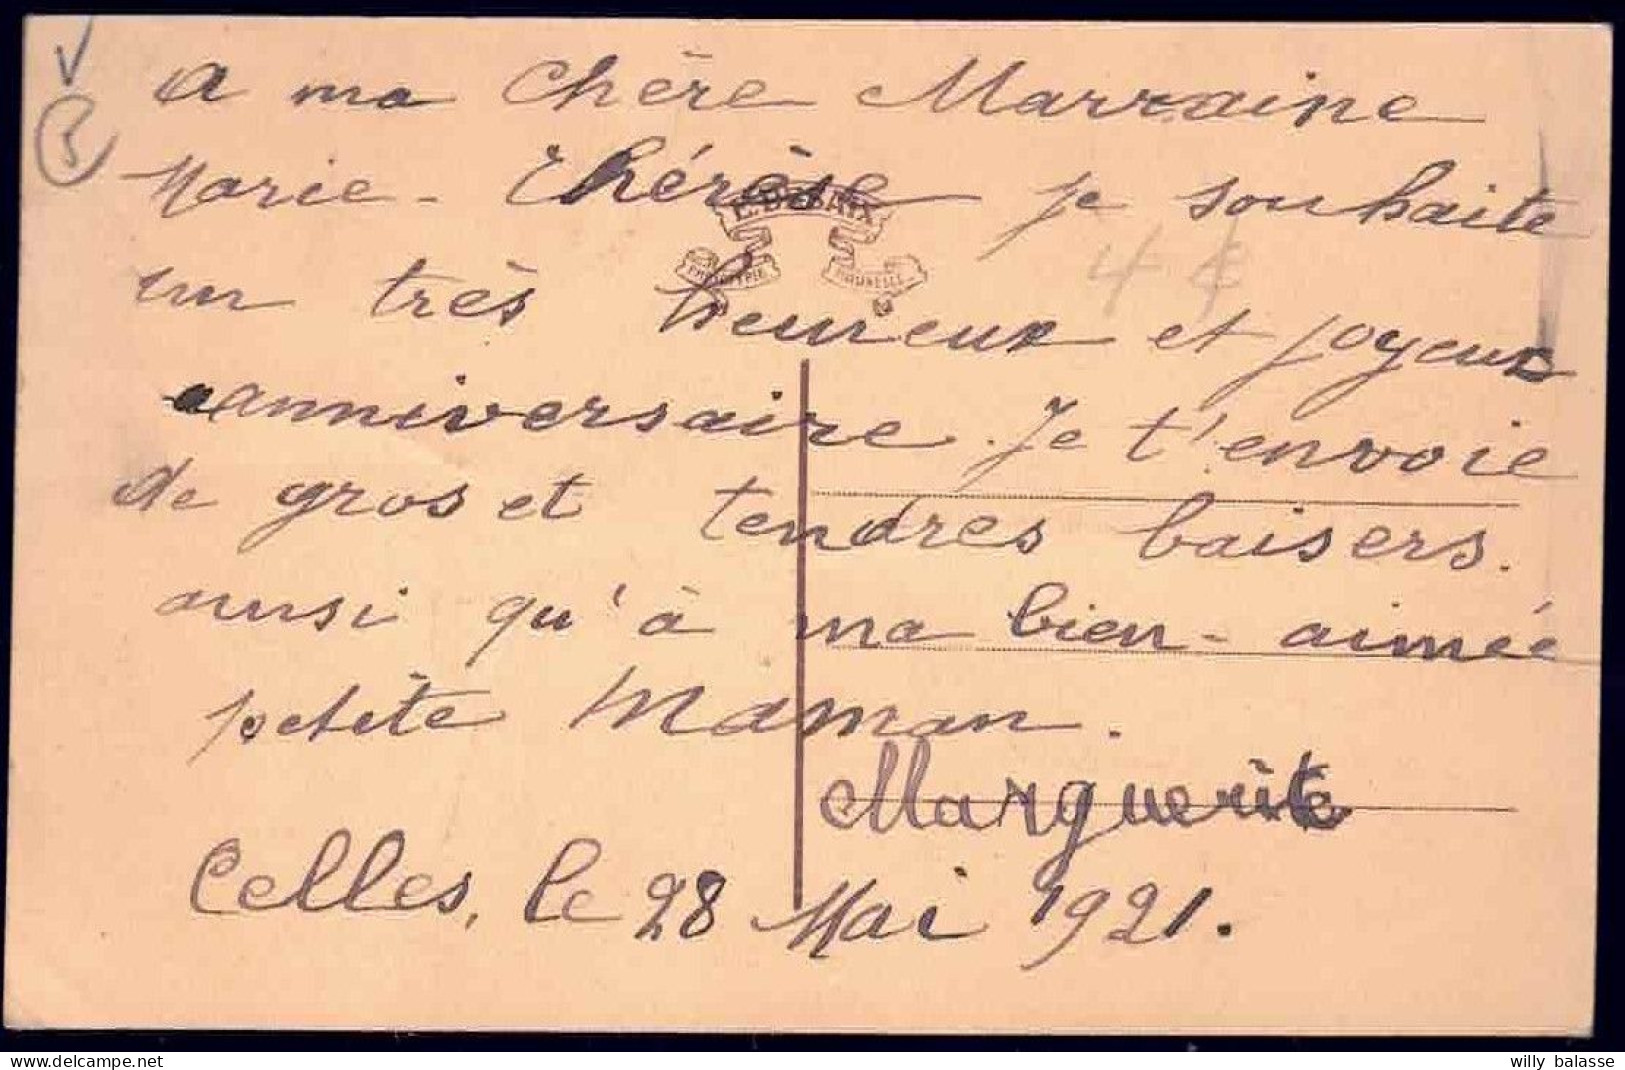 A ma Chère Marraine
Marie-Thérèse je souhaite
E. DESAIX
PHOTOTYPIE
BRUXELLES
un très heureux et joyeux
anniversaire. Je t'envoie
de gros et tendres baisers.
ainsi qu'à ma bien-aimée
petite Maman.
Marguerite
Celles, le 28 Mai 1921.
4 €
willy balasse